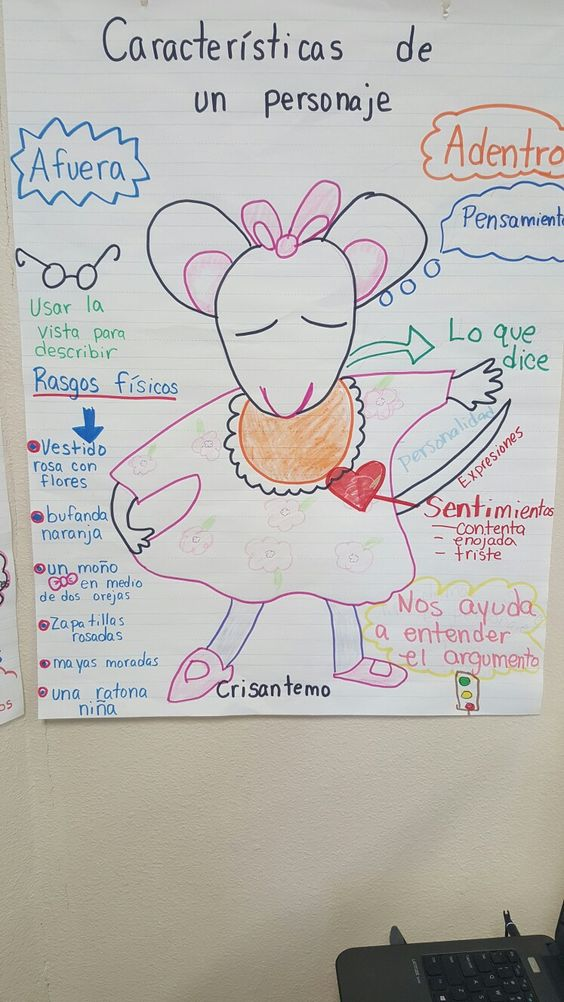 Características de
un personaje
Afuera
Usar la
vista para
describir
Rasgos físicos
Vestido
rosa con
flores
bufanda
naranja
un moño
en medio
de dos orejas
Zapatillas
rosadas
mayas moradas
una ratona
niña
Crisantemo
Adentro
Pensamiento
Lo que
dice
personalidad
Expresiones
Sentimientos
- contenta
- enojada
- triste
Nos ayuda
a entender
el argumento
os